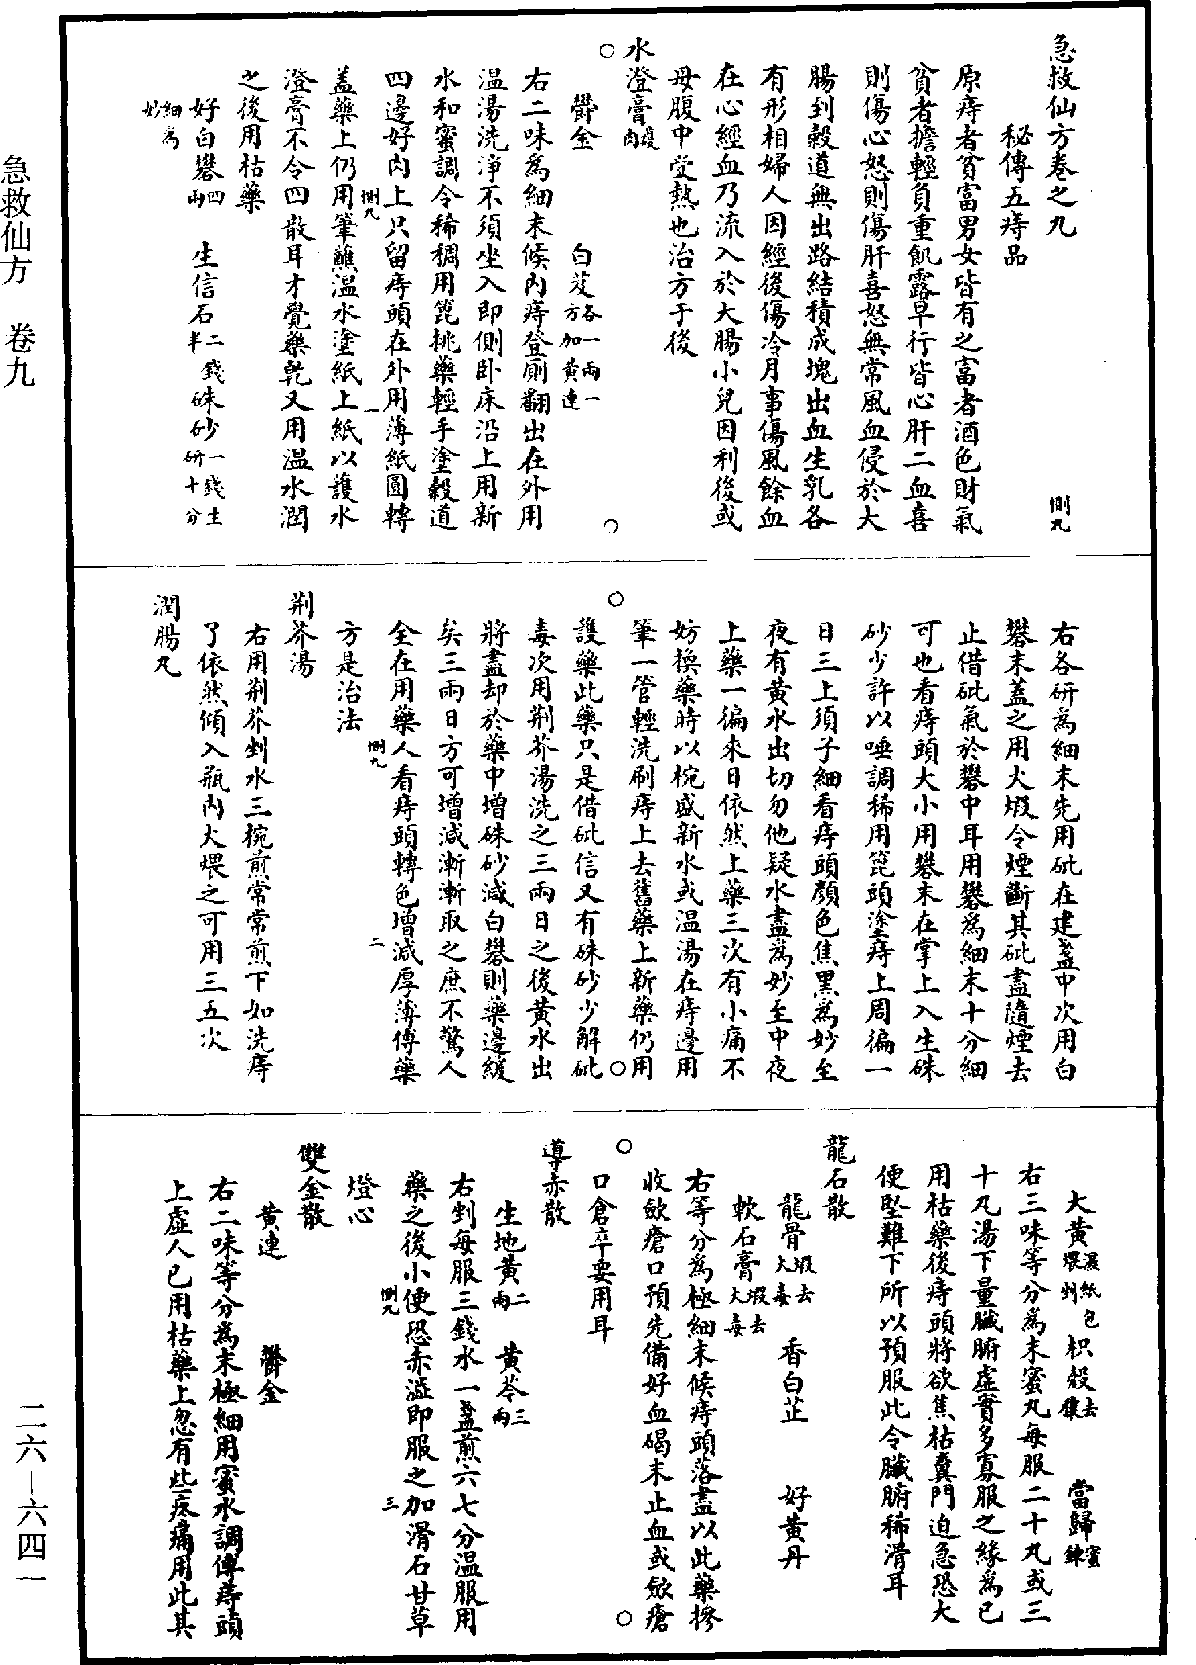 急救仙方卷之九 惻九
秘傳五痔品
原痔者貧富男女皆有之富者酒色財氣
貧者擔輕負重飢露早行皆心肝二血喜
則傷心怒則傷肝喜怒無常風血侵於大
腸到穀道無出路結積成塊出血生乳各
有形相婦人因經後傷冷月事傷風餘血
在心經血乃流入於大腸小兒因利後或
母腹中受熱也治方于後
水澄膏護肉
鬱金 白芨各一兩一方加黃連
右二味為細末候內痔登廁翻出在外用
溫湯洗淨不須坐入即側臥床沿上用新
水和蜜調令稀稠用篦挑藥輕手塗穀道
四邊好肉上只留痔頭在外用薄紙圓轉
惻九 一
蓋藥上仍用筆蘸溫水塗紙上紙以護水
澄膏不令四散耳才覺藥乾又用溫水潤
之後用枯藥
好白礬四兩 生信石二錢半 硃砂一錢生研十分
細為妙
右各研為細末先用砒在建盞中次用白
礬末蓋之用火煅令煙斷其砒盡隨煙去
止借砒氣於礬中耳用礬為細末十分細
可也看痔頭大小用礬末在掌上入生硃
砂少許以唾調稀用篦頭塗痔上周徧一
日三上須子細看痔頭顏色焦黑為妙至
夜有黃水出切勿他疑水盡為妙至中夜
上藥一徧來日依然上藥三次有小痛不
妨換藥時以椀盛新水或溫湯在痔邊用
筆一管輕洗刷痔上去舊藥上新藥仍用
護藥此藥只是借砒信又有硃砂少解砒
毒次用荊芥湯洗之三兩日之後黃水出
將盡却於藥中增硃砂減白礬則藥邊緩
矣三兩日方可增減漸漸取之庶不驚人
全在用藥人看痔頭轉色增減厚薄傅藥
惻九 二
方是治法
荊芥湯
右用荊芥剉水三椀煎常常煎下如洗痔
了依然傾入瓶內火煨之可用三五次
潤腸丸
大黃濕紙包煨剉 枳殼去穰 當歸蜜鍊
右三味等分為末蜜丸每服二十丸或三
十丸湯下量臟腑虛實多寡服之緣為已
用枯藥後痔頭將欲焦枯糞門迫急恐大
便堅難下所以預服此令臟腑稀滑耳
龍石散
龍骨煅去火毒 香白芷 好黃丹
軟石膏煅去火毒
右等分為極細末候痔頭落盡以此藥摻
收斂瘡口預先備好血碣末止血或斂瘡
口倉卒要用耳
導赤散
生地黃二兩 黃芩三兩
右剉每服三錢水一盞煎六七分溫服用
藥之後小便恐赤澁即服之加滑石甘草
惻九 三
燈心
雙金散
黃連 鬱金
右二味等分為末極細用蜜水調傅痔頭
上虛人已用枯藥上忽有些疼痛用此其
急救仙方 卷九
二六—六四一